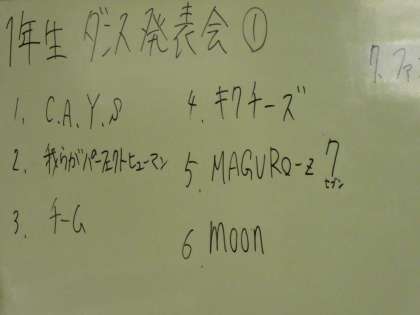 1年生 ダンス発表会①
1. C.A.Y.S
2. 我らがパーフェクトヒューマン
3. チームG
4. キクチーズ
5. MAGURO-Z 7
セブン
6. moon
7. ファ